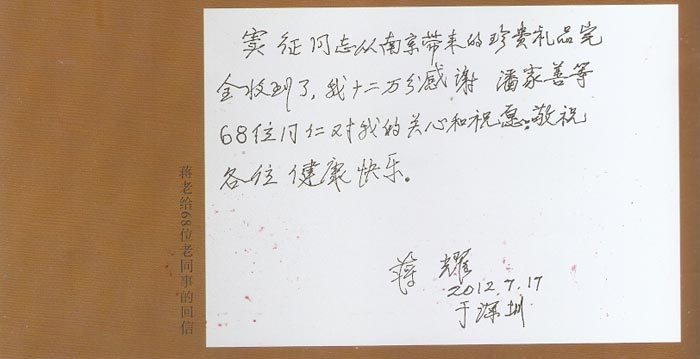 奕征同志从南京带来的珍贵礼品完
全收到了，我十二万分感谢 潘家善等
68位同仁对我的关心和祝愿。敬祝
各位 健康 快乐。
蒋 耀
2012.7.17
于深圳
蒋老给68位老同事的回信